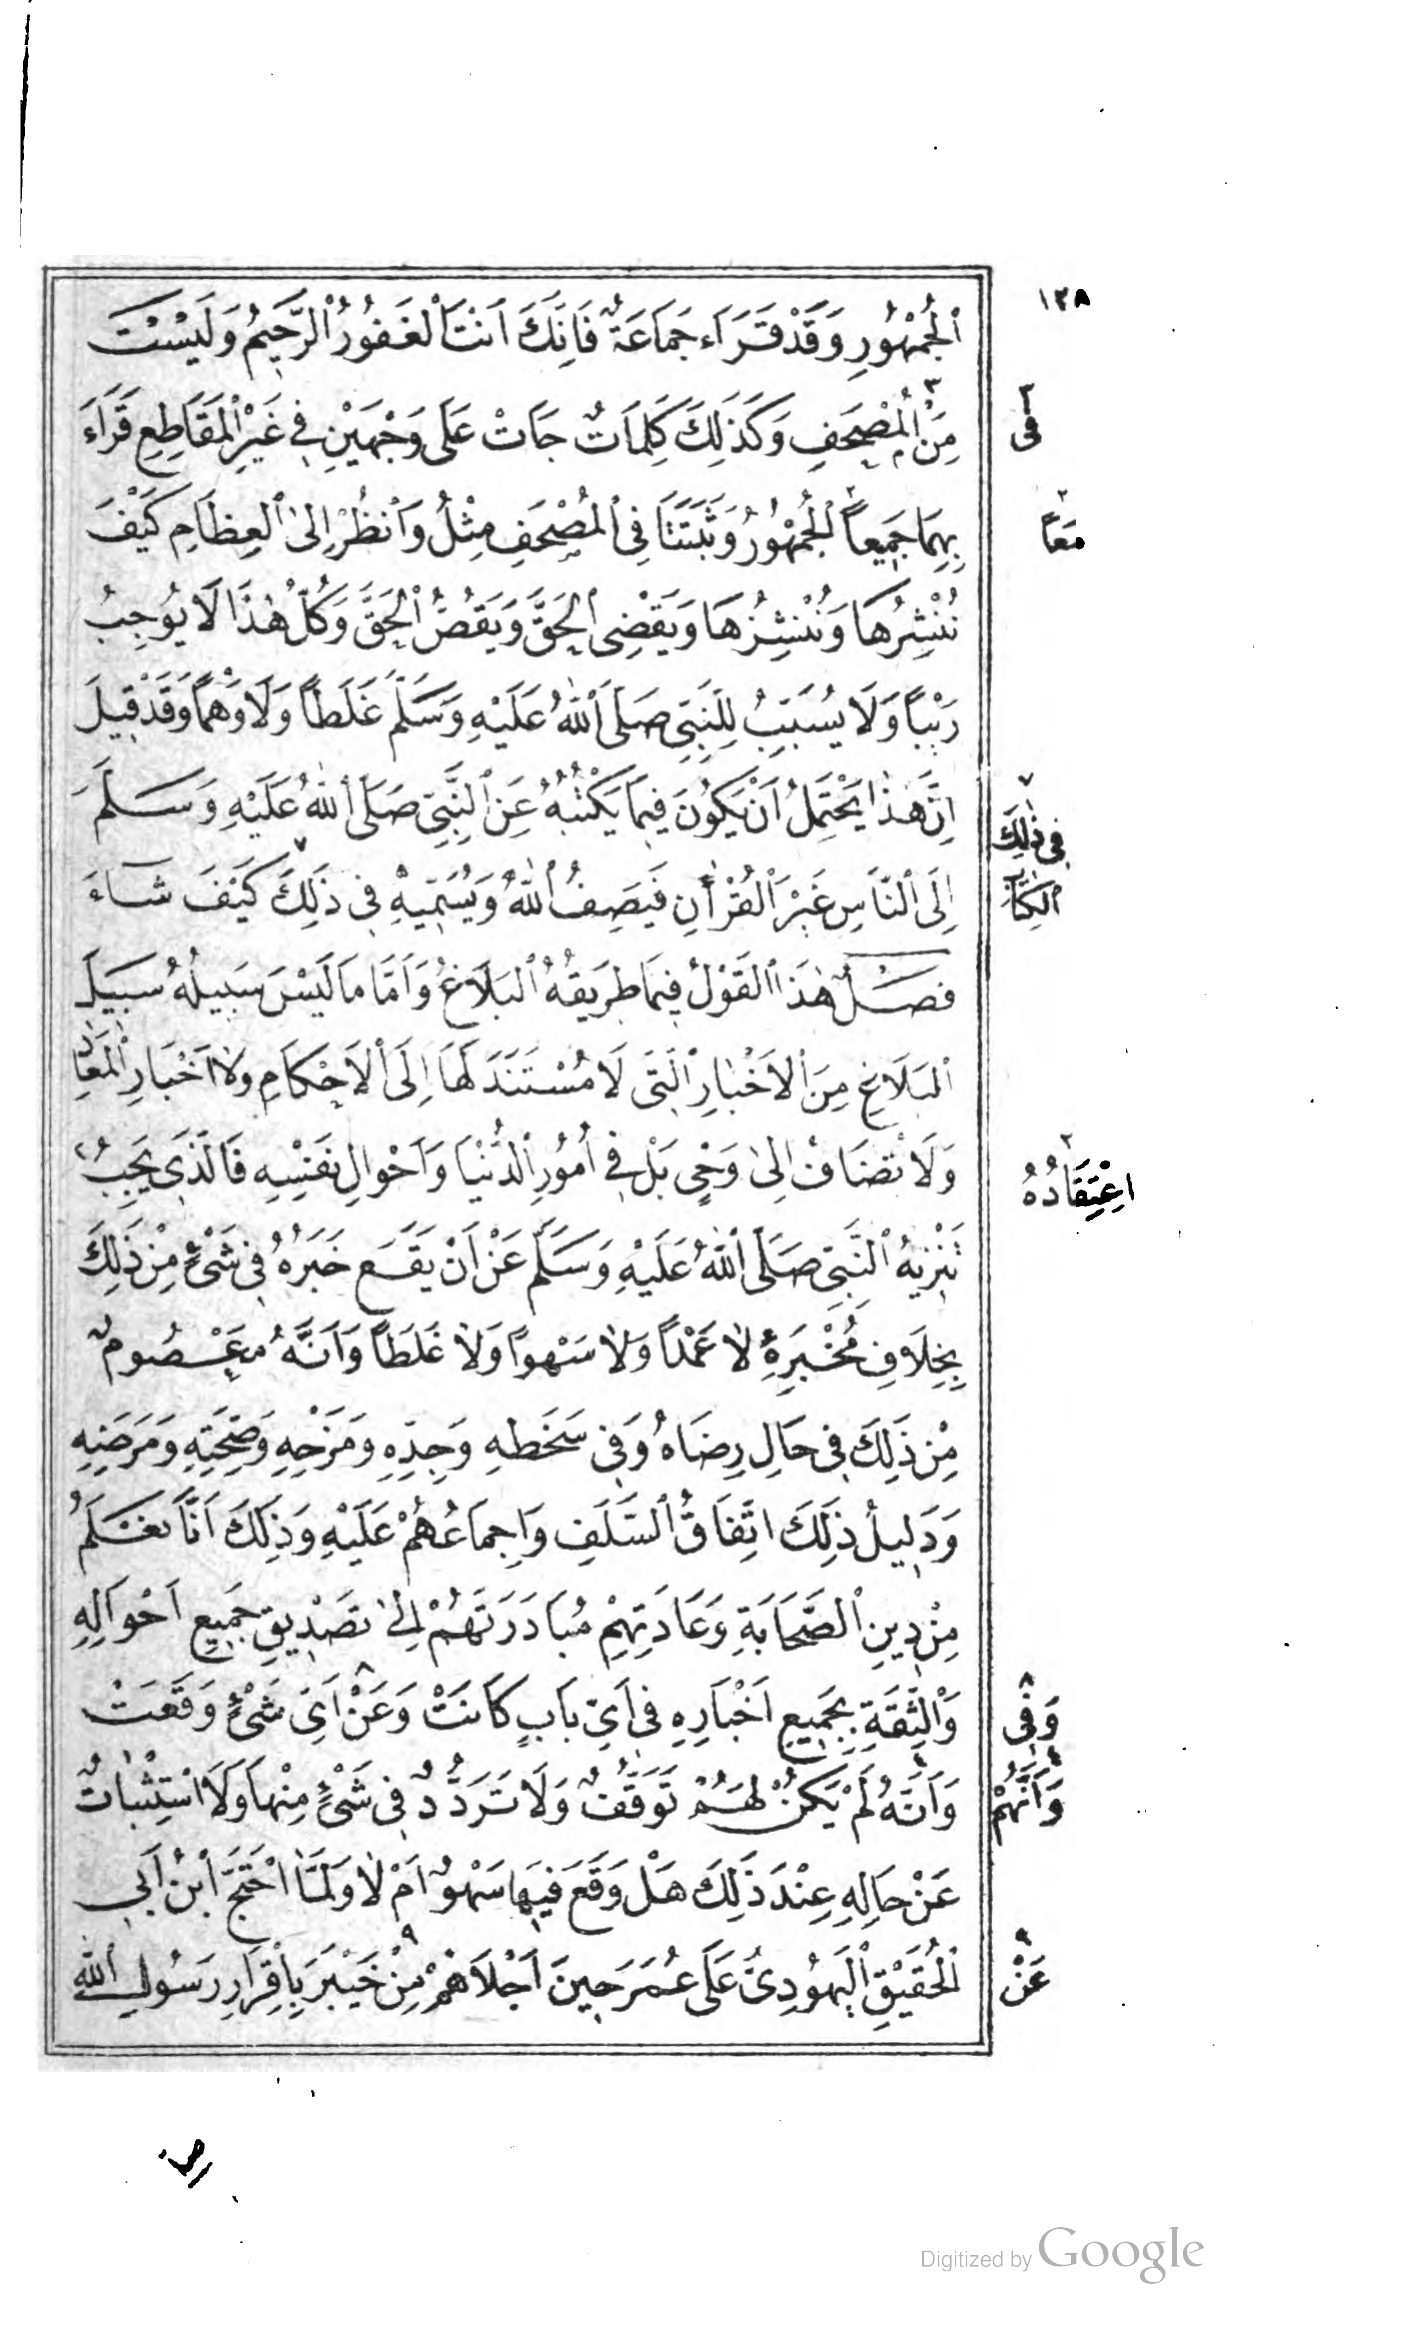 ١٣٨
ٱلْجُمْهُورِ وَقَدْ قَرَاَء جَمَاعَةٌ فَاِنَّكَ اَنْتَ ٱلْغَفُورُ ٱلرَّحِيمُ وَلَيْسَتْ
مِنَ ٱلْمُصْحَفِ وَكَذَلِكَ كَلِمَاتٌ جَاتْ عَلَى وَجْهَيْنِ فِي غَيْرِ ٱلْمَقَاطِعِ قَرَاَءَ
فى
بِهِمَا جَمِيعاً ٱلْجُمْهُورُ وَثَبَتَتَا فِى ٱلْمُصْحَفِ مِثْلُ وَٱنْظُرْ اِلىٰ ٱلْعِظَامِ كَيْفَ
مَعاً
نُنْشِرُهَا وَنُنْشِزُهَا وَيَقْضِى ٱلْحَقَّ وَيَقُصُّ ٱلْحَقَّ وَكُلُّ هٰذَا لَا يُوجِبُ
رَيْباً وَلَا يُسَبِّبُ لِلنَّبِىِّ صَلَّى ٱللهُ عَلَيْهِ وَسَلَّمَ غَلَطاً وَلَا وَهْماً وَقَدْ قِيلَ
اِنَّ هٰذَا يَحْتَمِلُ اَنْ يَكُونَ فِيمَا يَكْتُبُهُ عَنِ ٱلنَّبِىِّ صَلَّى ٱللهُ عَلَيْهِ وَسَلَّمَ
فى ذٰلِكَ
اِلَى ٱلنَّاسِ غَيْرَ ٱلْقُرْاٰنِ فَيَصِفُ ٱللهَ وَيُسَمِّيهِ فِى ذَلِكَ كَيْفَ شَاءَ
ٱلْكِتَابِ
فصَـــلٌ هٰذَا ٱلْقَوْلُ فِيمَا طَرِيقُهُ ٱلْبَلَاغُ وَاَمَّا مَا لَيْسَ سَبِيلُهُ سَبِيلَ
ٱلْبَلَاغِ مِنَ ٱلْاَخْبَارِ ٱلَّتِى لَا مُسْتَنَدَ لَهَا اِلَى ٱلْاَحْكَامِ وَلَا اَخْبَارِ ٱلْمَعَادِ
وَلَا تُضَافُ اِلىٰ وَحْىٍ بَلْ فِى اُمُورِ ٱلدُّنْيَا وَاَحْوَالِ نَفْسِهِ فَالَّذِى يَجِبُ
اِعْتِقَادُهُ
تَنْزِيهُ ٱلنَّبِىِّ صَلَّى ٱللهُ عَلَيْهِ وَسَلَّمَ عَنْ اَنْ يَقَعَ خَبَرُهُ فِى شَىْءٍ مِنْ ذَلِكَ
بِخِلَافِ مُخْبَرِهِ لَا عَمْداً وَلَا سَهْواً وَلَا غَلَطاً وَاَنَّهُ مَعْصُومٌ
مِنْ ذَلِكَ فِى حَالِ رِضَاهُ وَفِى سَخَطِهِ وَجِدِّهِ وَمَزْحِهِ وَصِحَّتِهِ وَمَرَضِهِ
وَدَلِيلُ ذٰلِكَ اتِّفَاقُ ٱلسَّلَفِ وَاِجْمَاعُهُمْ عَلَيْهِ وَذٰلِكَ اَنَّا نَعْلَمُ
مِنْ دِينِ ٱلصَّحَابَةِ وَعَادَتِهِمْ مُبَادَرَتَهُمْ اِلىٰ تَصْدِيقِ جَمِيعِ اَحْوَالِهِ
وَٱلثِّقَةِ بِجَمِيعِ اَخْبَارِهِ فِى اَىِّ بَابٍ كَانَتْ وَعَنْ اَىِّ شَىْءٍ وَقَعَتْ
وَفِى
وَاَنَّهُ لَمْ يَكُنْ لَهُمْ تَوَقُّفٌ وَلَا تَرَدُّدٌ فِى شَىْءٍ مِنْهَا وَلَا اسْتِثْبَاتٌ
وَاَنَّهُمْ
عَنْ حَالِهِ عِنْدَ ذٰلِكَ هَلْ وَقَعَ فِيهَا سَهْوٌ اَمْ لَا وَلَمَّا احْتَجَّ ٱبْنُ اَبِى
ٱلْحُقَيْقِ ٱلْيَهُودِىُّ عَلَى عُمَرَ حِينَ اَجْلَاهُمْ مِنْ خَيْبَرَ بِاِقْرَارِ رَسُولِ ٱللهِ
عَنْ
Digitized by Google